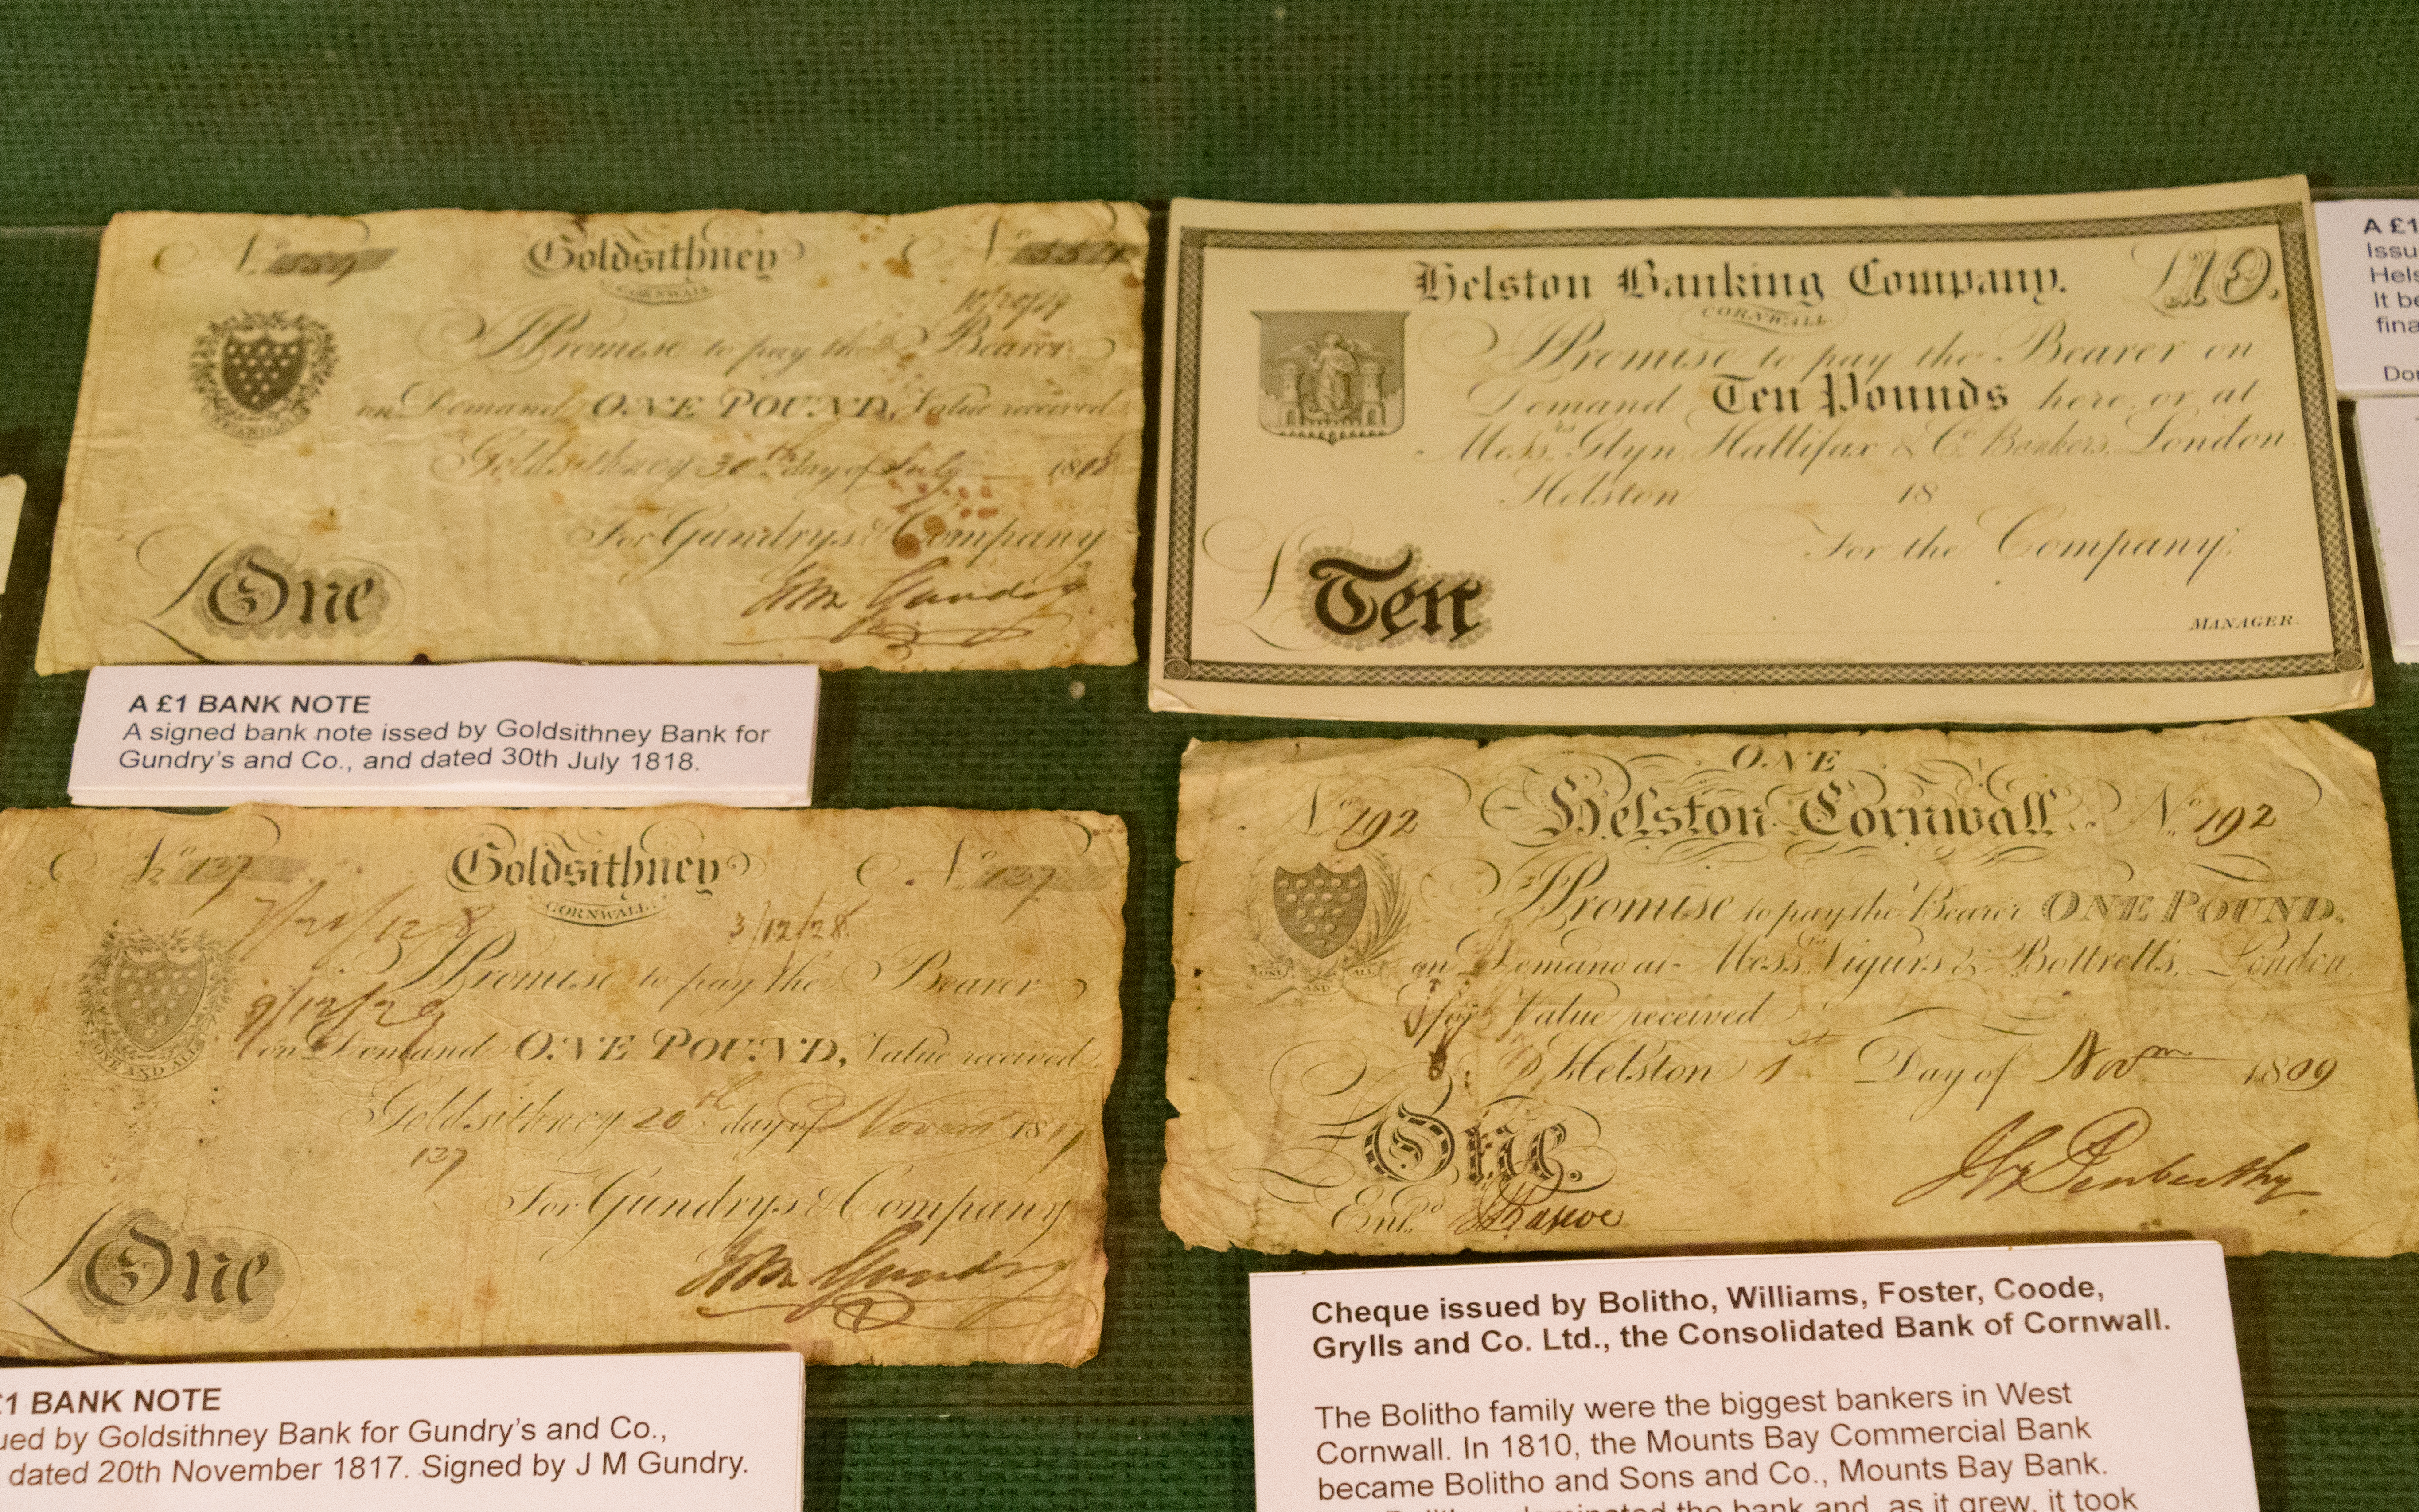 Goldsithney
CORNWALL
I Promise to pay the Bearer
on Demand ONE POUND, Value received
Goldsithney 30th day of July 1818
For Gundrys & Company
£One
A £1 BANK NOTE
A signed bank note issed by Goldsithney Bank for
Gundry's and Co., and dated 30th July 1818.
Helston Banking Company. £10.
CORNWALL
I Promise to pay the Bearer on
Demand Ten Pounds here or at
Messrs Glyn, Hallifax & Co. Bankers, London.
Helston 18
For the Company,
£Ten
MANAGER.
A £1
Issu
Hels
It be
fina
Don
No 137 Goldsithney No 137
CORNWALL
3/12/28
I Promise to pay the Bearer
9/12/29
on Demand ONE POUND, Value received
ONE AND ALL
Goldsithney 20th day of Novem 1817
137
For Gundrys & Company
£One
£1 BANK NOTE
ued by Goldsithney Bank for Gundry's and Co.,
dated 20th November 1817. Signed by J M Gundry.
ONE
No 192 Helston Cornwall No 192
I Promise to pay the Bearer ONE POUND.
ONE AND ALL
on Demand at Messrs Vigurs & Bottrell's, London
for Value received
Helston 1st Day of Novm 1809
£One.
Entd
Cheque issued by Bolitho, Williams, Foster, Coode,
Grylls and Co. Ltd., the Consolidated Bank of Cornwall.
The Bolitho family were the biggest bankers in West
Cornwall. In 1810, the Mounts Bay Commercial Bank
became Bolitho and Sons and Co., Mounts Bay Bank.
dominated the bank and, as it grew, it took